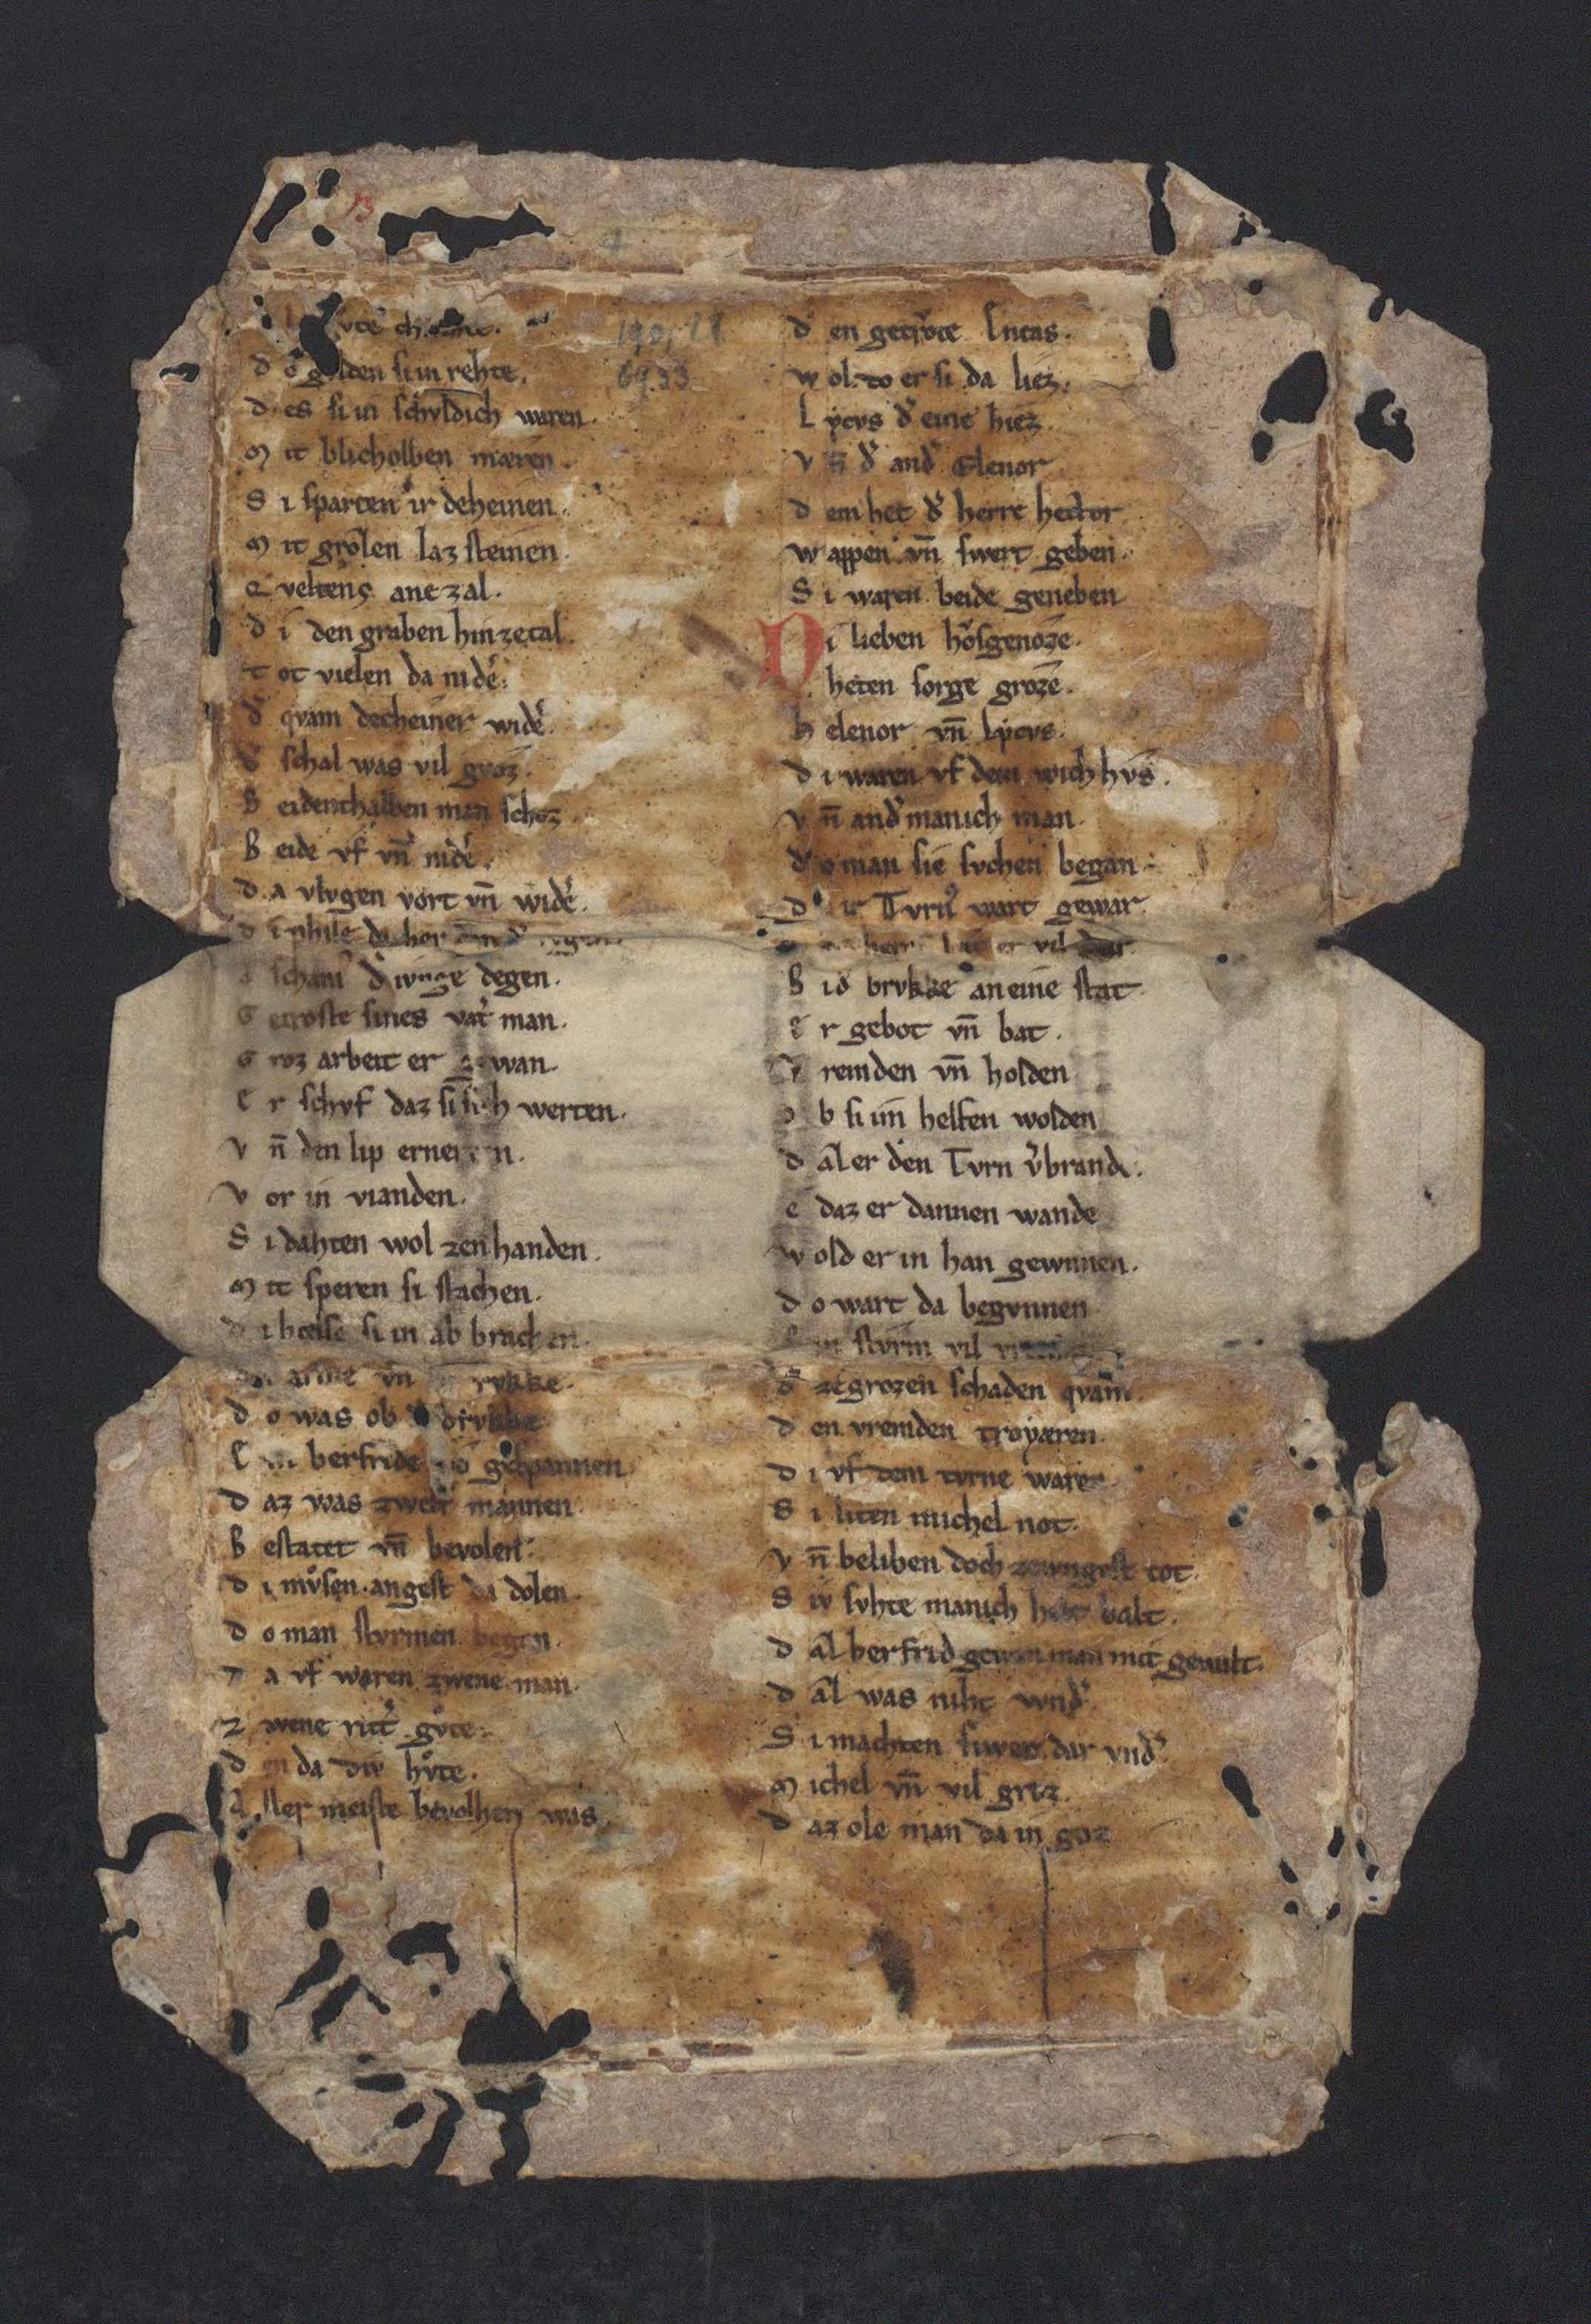 13
vte
190, 18
6933
d o gulden si in rehte.
d es si in schvldich waren.
M it blicholben mæren.
S i sparten ir deheinen.
M it grozen laz steinen.
ane zal.
d i den graben hin zetal.
T ot vielen da nider.
dˀ qvam decheiner widˀ.
dˀ schal was vil groz.
B eidenthalben man schoz
B eide vf vn̄ nidˀ.
d a vlvgen vort vn̄ widˀ.
d i phile
dˀ ivnge degen.
G etroste sines vatˀ man.
G roz arbeit er gewan.
E r schvf daz si sich werten.
v n̄ den lip ernerten.
V or in vianden.
S i dahten wol zen handen.
M it speren si stachen.
d i helse si in ab brachen.
arme vn̄ rvkke.
d o was ob
E in berfride
d az was zwein mannen.
B estatet vn̄ bevolen.
d i mvͦsen angest da dolen.
d o man stvrmen began.
d a vf waren zwene man.
Z wene rittˀ gvͦte.
d en da div hvͦte.
A ller meiste bevolhen was.
d en getrvͦte Eneas.
W ol do er si da liez.
L ẏcvs dˀ eine hiez.
V n̄ dˀ andˀ Elenor
d em het dˀ herre hector
W appen vn̄ swert geben.
S i waren beide geneben
D i lieben hovsgenoze.
heten sorge groze.
h elenor vn̄ Lẏcvs.
d i waren vf dem wich hvs.
v n̄ andˀ manich man.
d o man sie svchen began.
d ir Tvrnˀ wart gewar.
vil dar
B i dˀ brvkke an eine stat
E r gebot vn̄ bat.
V remden vn̄ holden
o b si im helfen wolden
d az er den Tvrn vˀbrande.
e daz er dannen wande
W old er in han gewnnen.
d o wart da begvnnen
E in stvrm vil
dˀ ze grozen schaden qvam.
d en vremden troẏæren.
d i vf dem tvrne waren
S i liten michel not.
V n̄ beliben doch zeivngest tot.
S iv svhte manich helt balt.
d az berfrid gewan man mit gewalt.
d az was niht wndˀ.
S i machten fiwer dar vndˀ.
M ichel vn̄ vil groz.
d az ole man da in goz